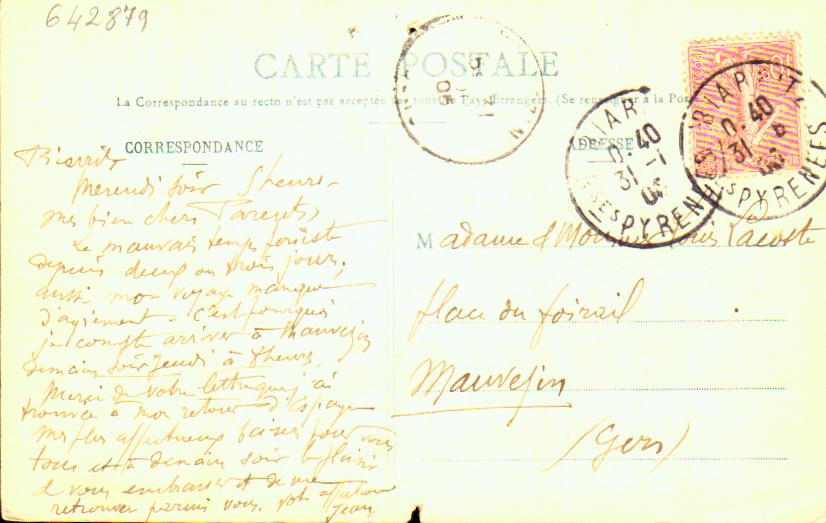 642879
CARTE POSTALE
La Correspondance au recto n'est pas acceptée par tous les Pays Étrangers. (Se renseigner à la Poste
CORRESPONDANCE
ADRESSE
Biarritz
Mercredi soir 5 heures
Mes bien chers Parents
Le mauvais temps persiste
depuis deux ou trois jours,
aussi mon voyage manque
d'agrément. C'est pourquoi
je compte arriver à Mauvezin
demain soir Jeudi à 8 heures.
Merci de votre lettre que j'ai
trouvée à mon retour d'Espagne
Mes plus affectueux baisers pour vous
tous et à demain soir le plaisir
de vous embrasser et de me
retrouver parmi vous. Votre affectionné
Jean
Madame & Monsieur Louis Lacoste
place du foirail
Mauvezin
(Gers)
BIARRITZ
11.40
31 -1
BSES PYRENEES
BIARRITZ
11.40
31
BSES PYRENEES
10